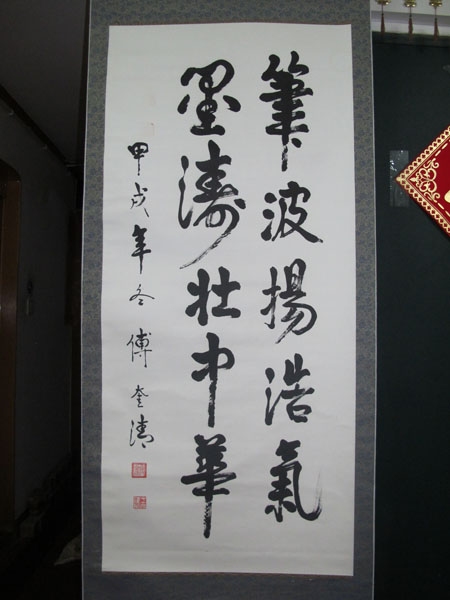 筆波揚浩氣
墨濤壯中華
甲戌年冬傅奎清